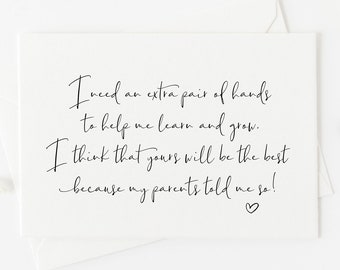 I need an extra pair of hands
to help me learn and grow.
I think that yours will be the best
because my parents told me so!